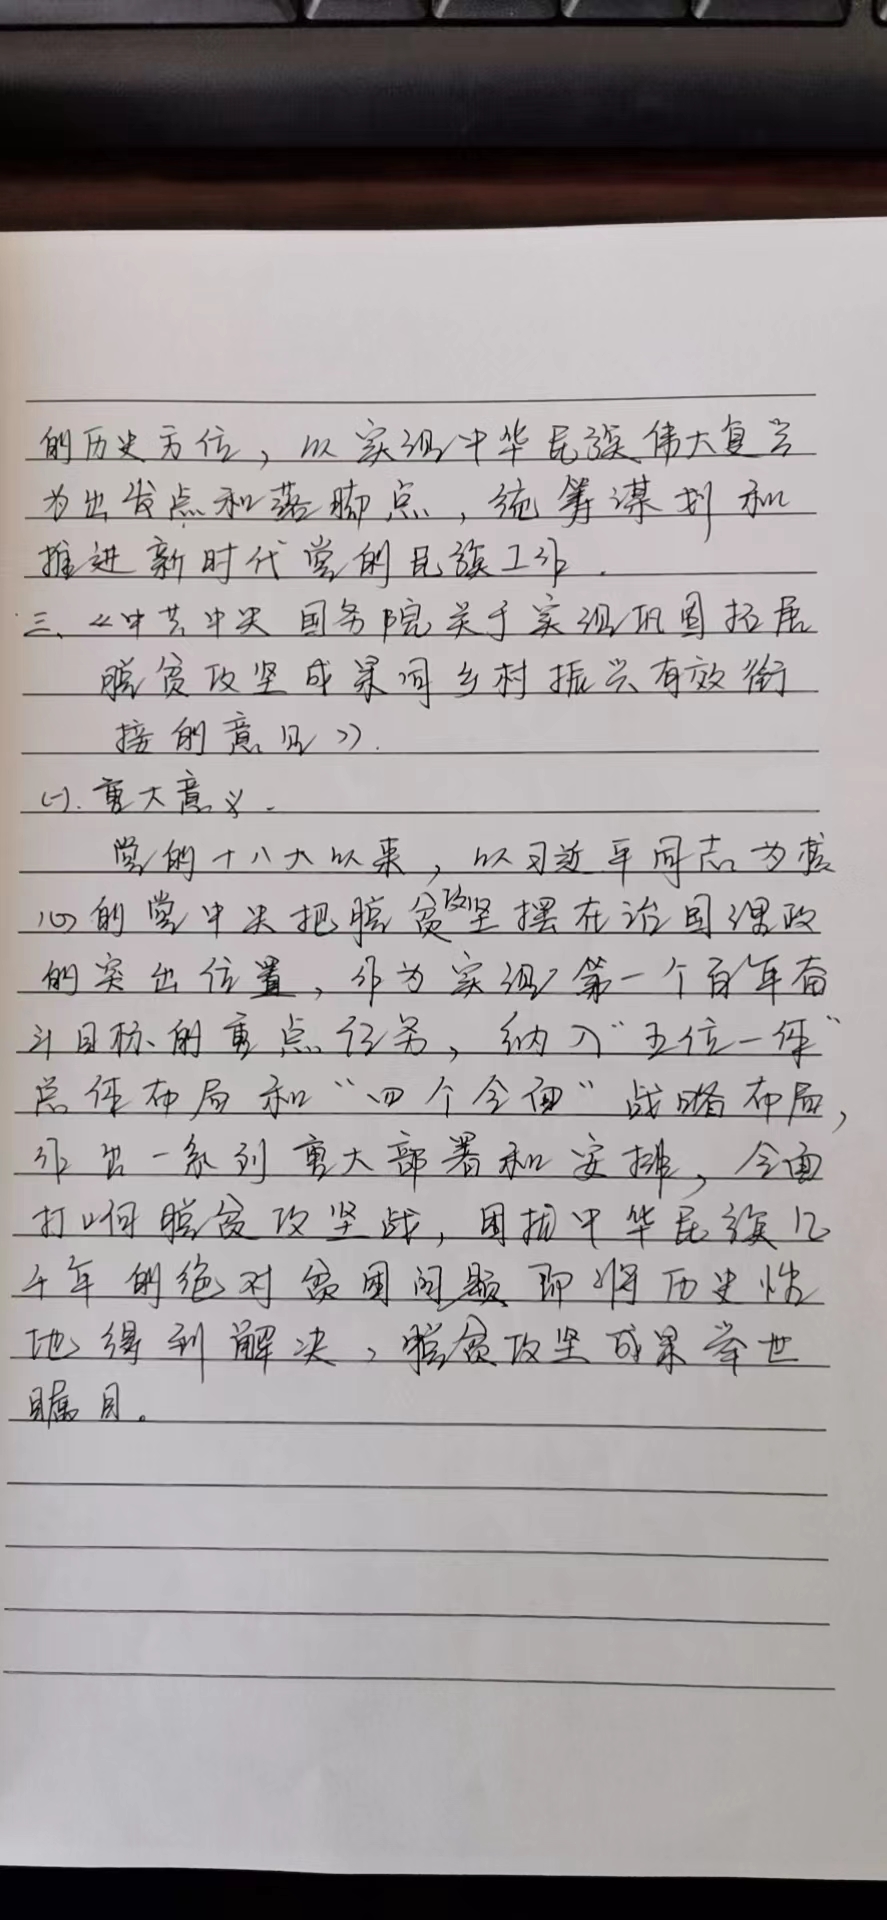 的历史方位，以实现中华民族伟大复兴
为出发点和落脚点，统筹谋划和
推进新时代党的民族工作.
三、《中共中央 国务院关于实现巩固拓展
脱贫攻坚成果同乡村振兴有效衔
接的意见》.
(一).重大意义.
党的十八大以来，以习近平同志为核
心的党中央把脱贫攻坚摆在治国理政
的突出位置，作为实现第一个百年奋
斗目标的重点任务，纳入“五位一体”
总体布局和“四个全面”战略布局，
作出一系列重大部署和安排，全面
打响脱贫攻坚战，困扰中华民族几
千年的绝对贫困问题即将历史性
地得到解决，脱贫攻坚成果举世
瞩目。